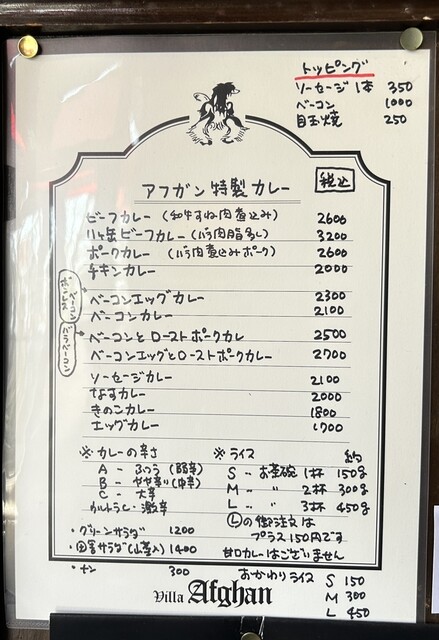 トッピング
ソーセージ1本 350
ベーコン 1000
目玉焼 250
税込
アフガン特製カレー
ビーフカレー (和牛すね肉煮込み) 2600
リヶ缶ビーフカレー (バラ肉脂多し) 3200
ポークカレー (バラ肉煮込みポーク) 2600
チキンカレー 2000
ベーコンエッグカレー 2300
ベーコンカレー 2100
ベーコンとローストポークカレー 2500
ベーコンエッグとローストポークカレー 2700
ソーセージカレー 2100
なすカレー 2000
きのこカレー 1800
エッグカレー 1700
※カレーの辛さ
A - ふつう (中辛)
B - やや辛い (中辛)
C - 大辛
ウルトラC・激辛
※ライス 約
S ‥ お茶碗 1杯 150g
M ‥ 〃 2杯 300g
L ‥ 〃 3杯 450g
Ⓛの御注文は
プラス150円です
甘口カレーはございません
・グリーンサラダ 1200
・田舎サラダ(山菜入) 1400
・ナン 300
おかわりライス S 150
M 300
L 450
Villa Afghan